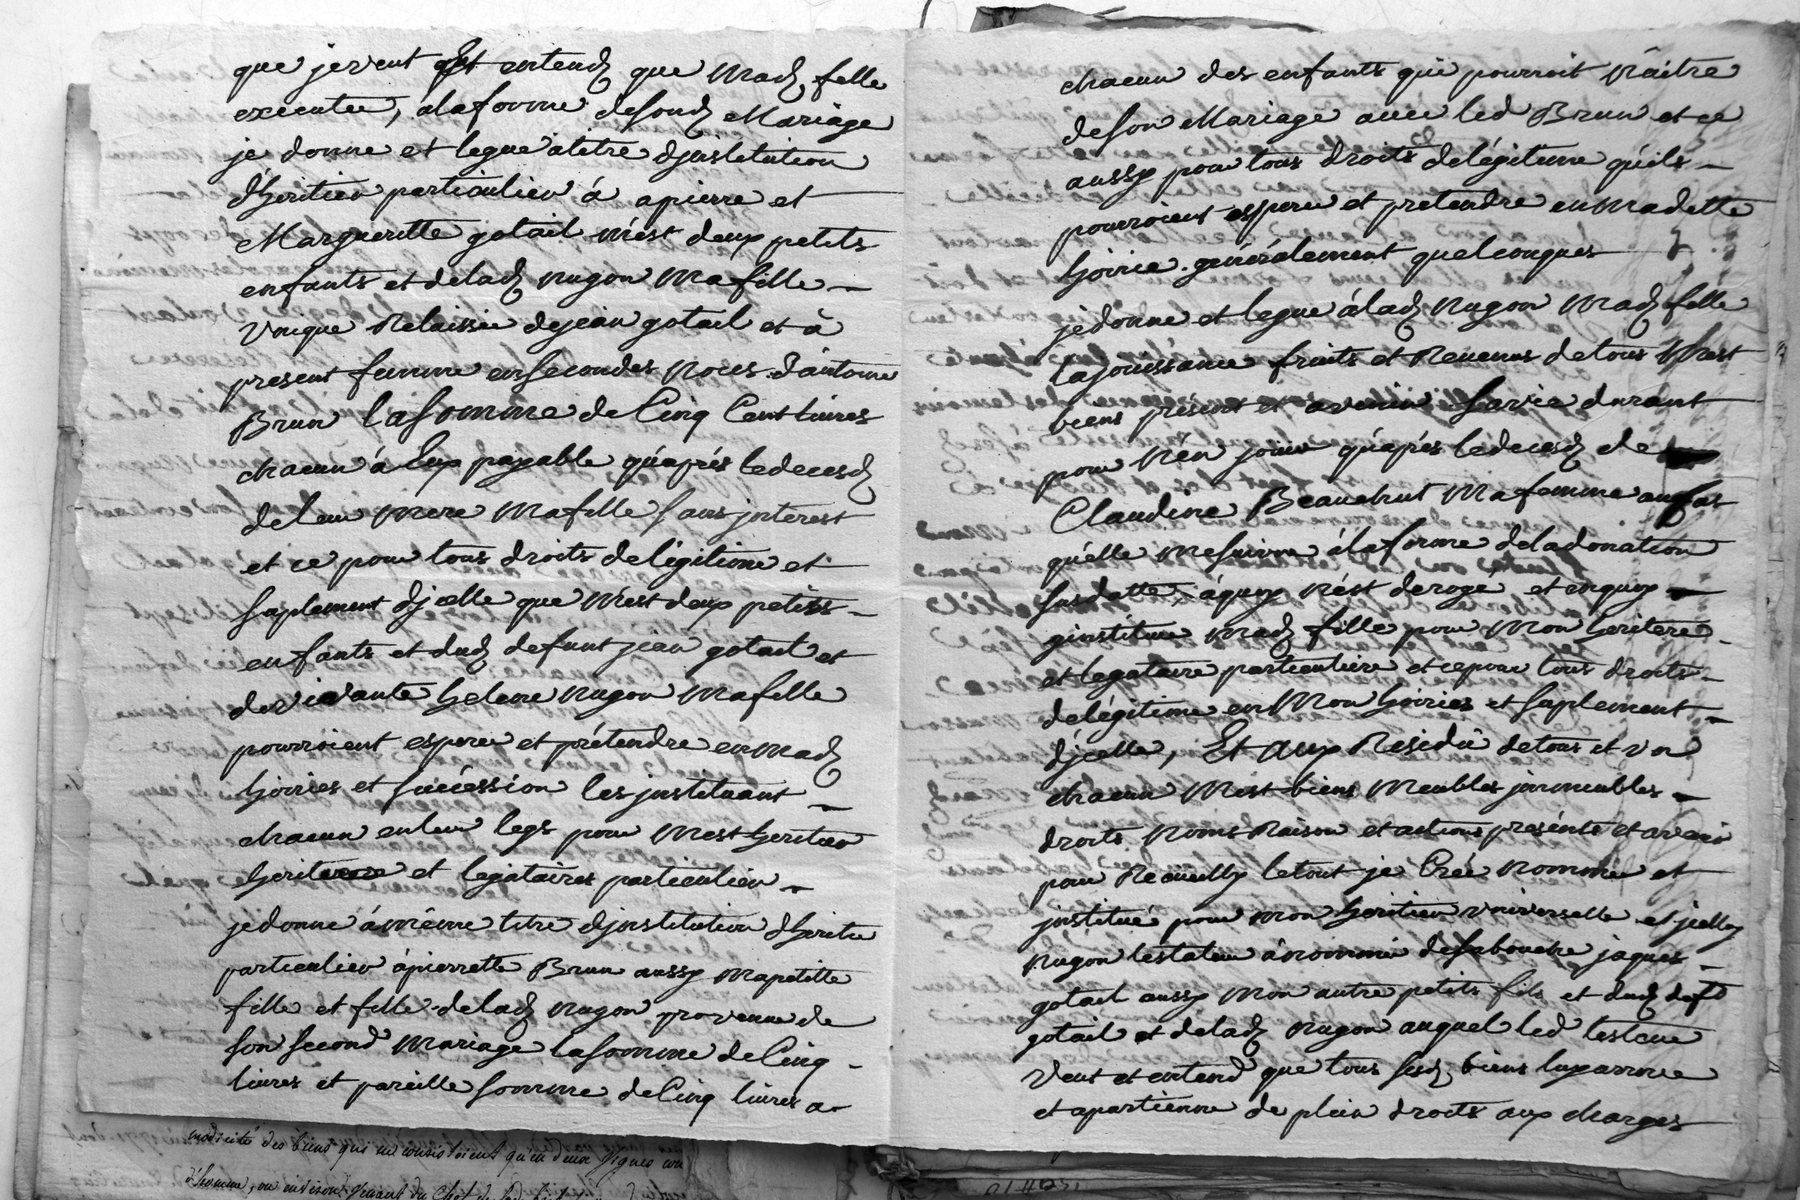 que je veut Et entend que mad. fille
execute, a la forme de sond. Mariage
je donne et legue a titre d'jnstitution
d'heritier particulier á apierre et
Margueritte gotail m'est deux petits
enfants et de lad. nugon Ma fille
Vnique Relaissée de jean gotail et à
present femme en secondes Noces d'antoine
Brun la somme de Cinq Cent livres
chacun á Eux payable qu'aprés le decesd.
de leur Mere Ma fille sans jnterest
et ce pour tous droits de legitime et
suplement d'jcelle que m'est deux petits
enfants et dud. defunt jean gotail et
de vivante helene nugon Ma fille
pourroient esperer et prétendre en mad.
hoiries et succéssion les jnstituant
chacun en leur legs pour m'est heritier
heritere et legataires particulier
je donne á même titre d'jnstitution d'heritier
particulier á pierrette Brun aussy ma petitte
fille et fille de lad. nugon provenue de
son second Mariage la somme de Cinq
livres et pareille somme de Cinq livres a
chacun des enfants qui pourroit Náitre
de son Mariage avec led Brun et ce
aussy pour tous droits de légitime qu'ils
pourroient esperer et pretendre en madette
hoirie généralement quelconques
je donne et legue á lad. nugon mad. fille
la jouissance fruits et Revenus de tous M'est
biens présent et avenir sa vie durant
pour N'en jouir qu'aprés le decesd. de
Claudine Beauchut Ma femme au cas
qu'elle me survive á la forme de la donation
susdette, áquoy N'ést derogé et enquoy
j'institue mad. fille pour Mon heritere
et legataire particuliere et ce pour tous droits
de légitime en Mon hoiries et suplement
d'jcelle, Et aux Residu de tous et vn
chacun M'est biens Meubles jmmeubles
droits Noms Raison et actions présents et avenir
pour Recueilly le tout je Créé nommée et
jnstitué pour mon heritier vniverselle et jcelluy
nugon testateur á nommé de sa bouche jaques
gotail aussy mon autre petits fils et dud. deft
gotail et de lad. Nugon auquel led testeur
Veut et entend que tous sesd. biens luy arrive
et apartienne de plein droits aux charges
modicité des biens qui ne consistoient qu'en deux vignes